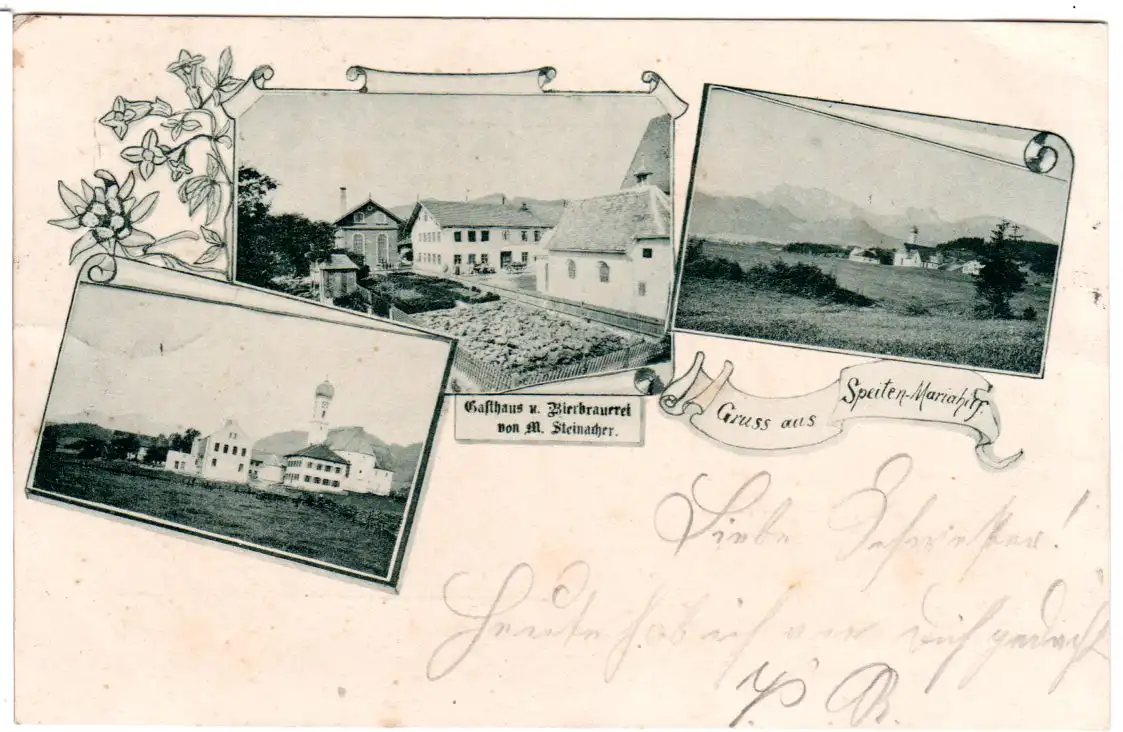 Gasthaus u. Bierbrauerei
von M. Steinacher.
Gruss aus
Speiten-Mariahilf.
Liebe Schwester!
Heute hab ich an dich gedacht